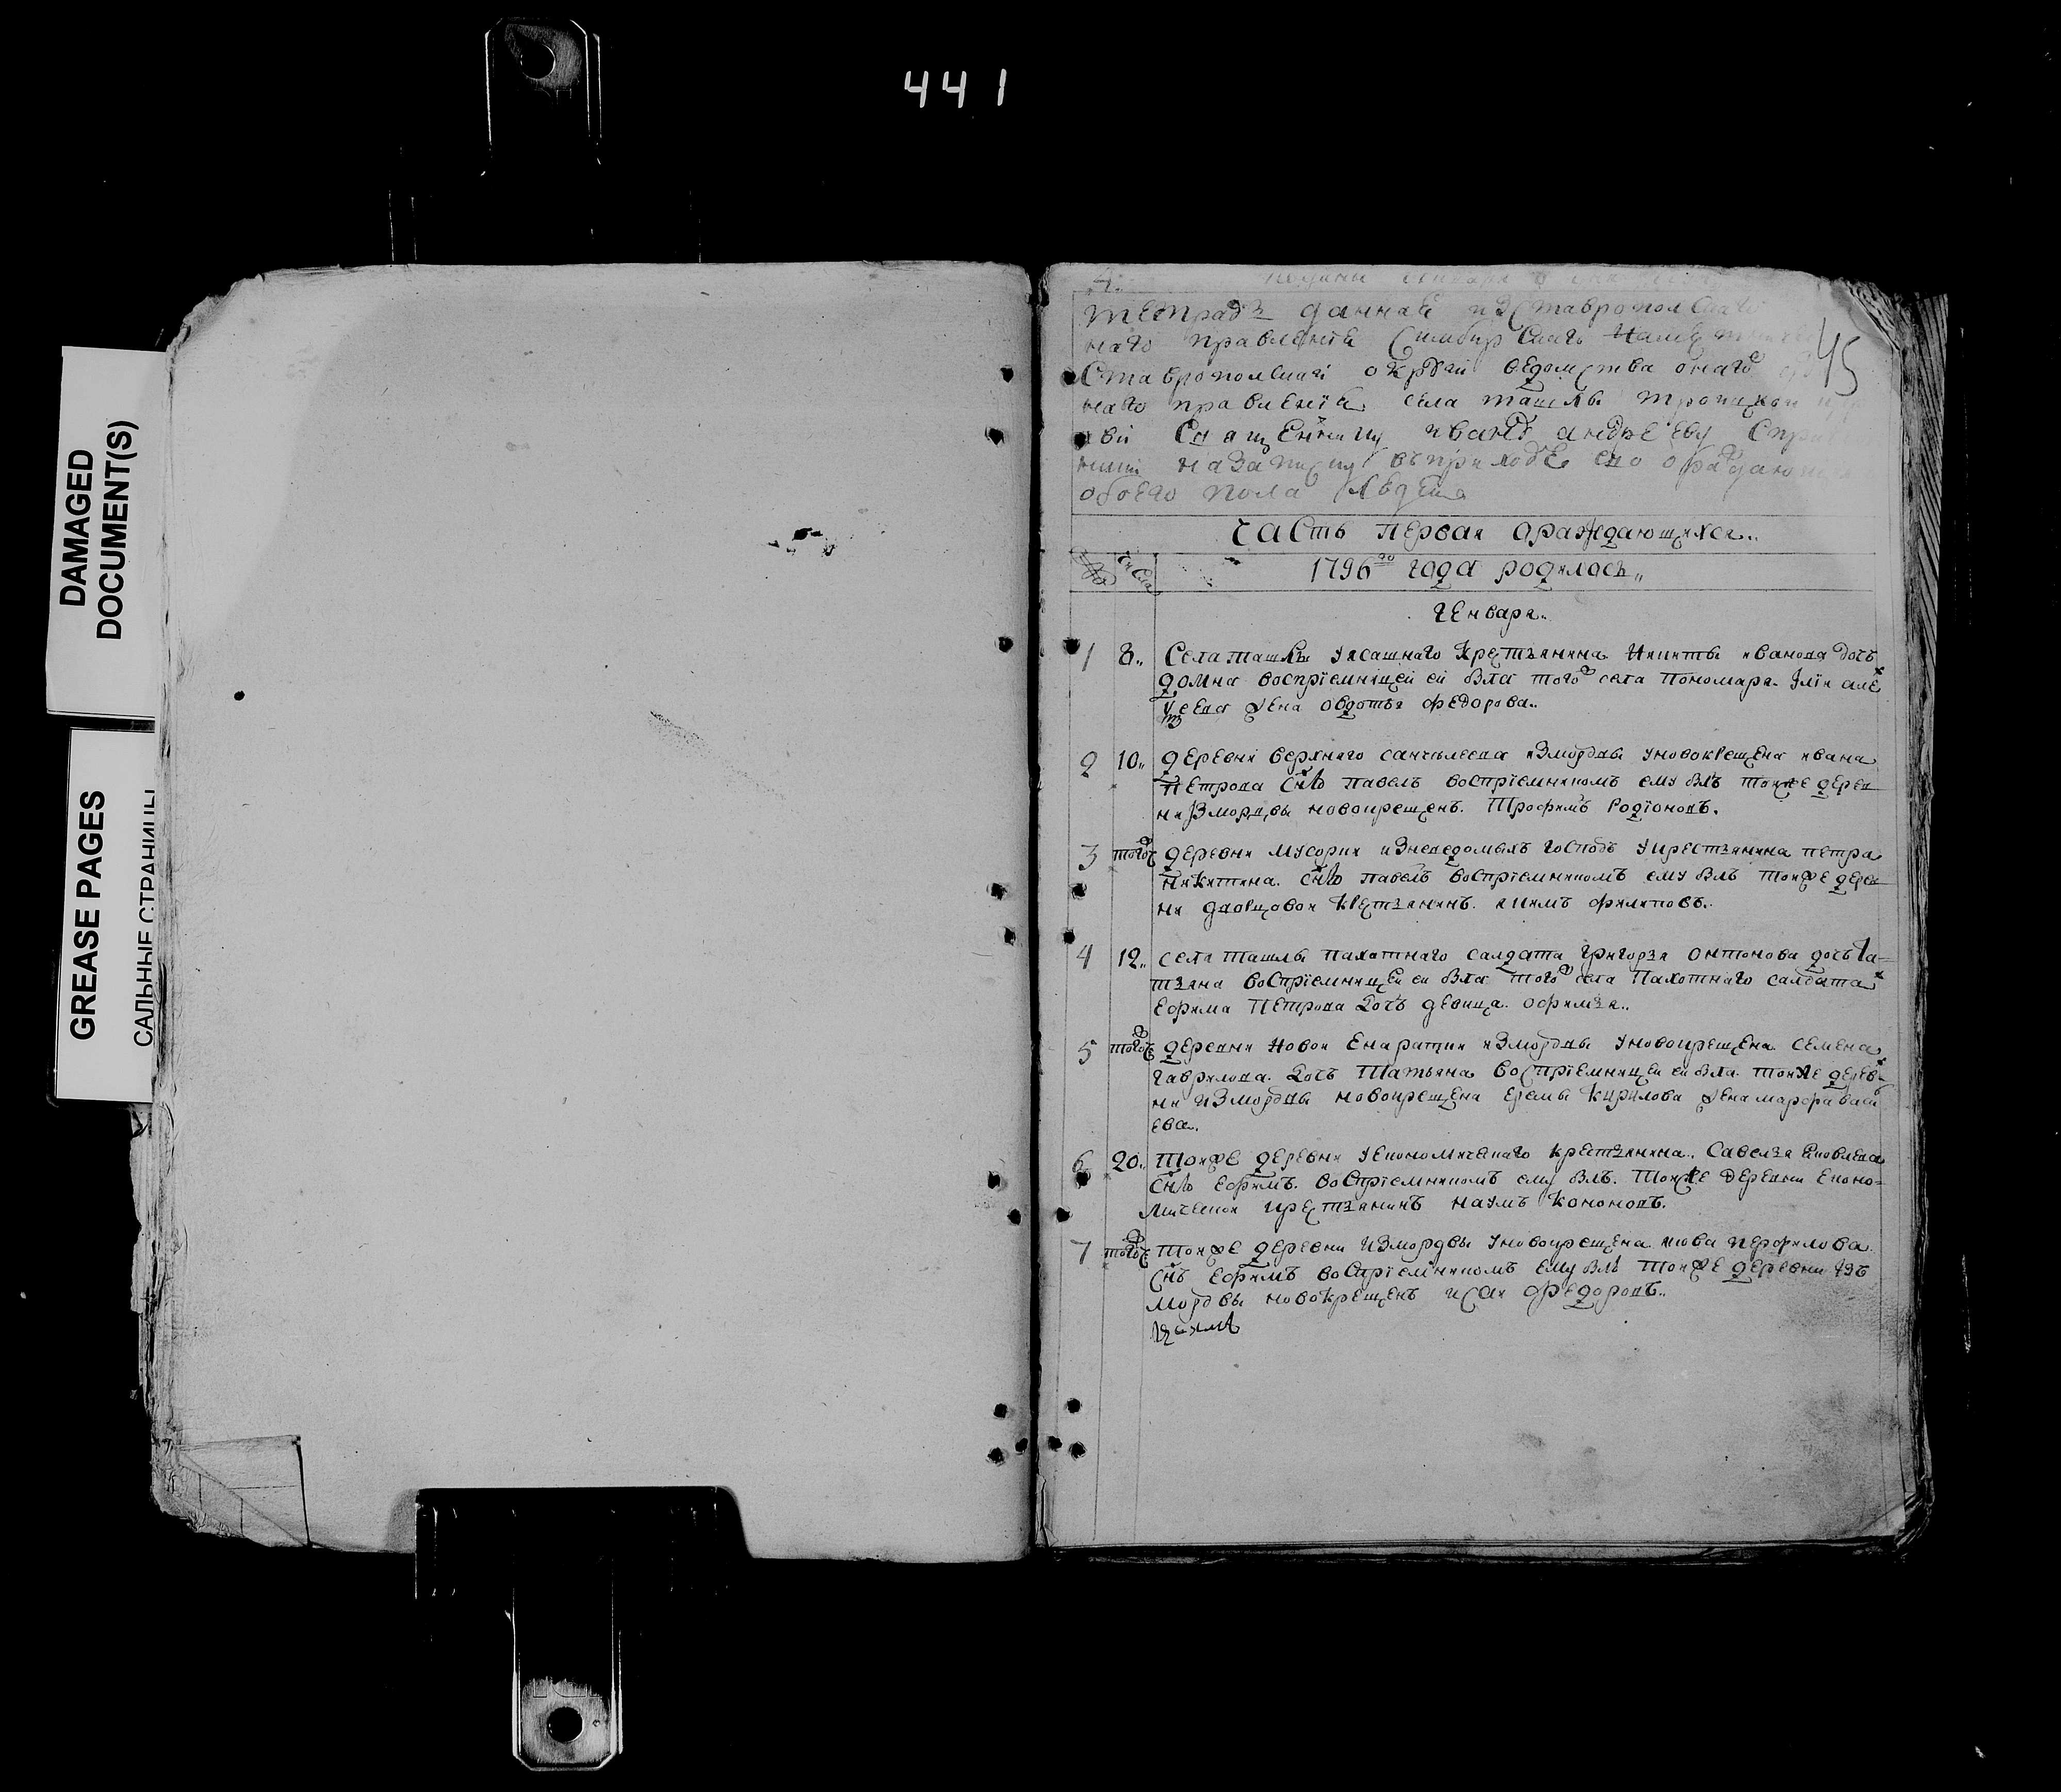 441
DAMAGED
DOCUMENT(S)
GREASE PAGES
САЛЬНЫЕ СТРАНИЦЫ
45
тетрадь данная изставропольскаго
наго правленія Симбирскаго
Ставропольской округи ведомства онаго
наго правленія села ташлы троицкой
священнику ивану андрееву
назаписку въприходе ево
обоего пола людеи
часть первая ораждающихся..
числа
1796го года родилось„
Генваря..
1 8.. Села ташлы уясашнаго крестьянина Никиты иванова дочь
домна воспріемницей ей была тогож села пономаря Іліи але
жена овдотья федорова..
2 10.. деревни верхняго санчелеева измордвы уновокрещена ивана
петрова снъ павелъ воспріемникомъ ему былъ тоиже дерев
ни измордвы новокрещенъ. Трофимъ Родіоновъ.
3 тогож деревни мусорки укрестьянина петра
никитина. снъ павелъ воспріемникомъ ему былъ тоиже дерев
ни дворцовои крестьянинъ. якимъ филиповъ..
4 12.. села ташлы пахотнаго салдата григорья онтонова дочь та-
тьяна воспріемницеи еи была тогож села пахотнаго салдата
ефима петрова дочь девица. офимья..
5 тогож деревни новои измордвы уновокрещена семена
гаврилова. дочь татьяна воспріемницеи еи была тоиже дерев-
ни измордвы новокрещена еремы кирилова жена марфа васи
ева..
6 20.. тоиже деревни уекономическаго крестьянина. Савелья яковлева
снъ ефимъ. воспріемникомъ ему былъ. тоиже деревни еконо-
мическои крестьянинъ наумъ кононовъ.
7 тогож тоиже деревни измордвы уновокрещена иова перфилова
снъ ефимъ воспріемникомъ ему былъ тоиже деревни изъ
мордвы новокрещенъ исаи федоровъ..